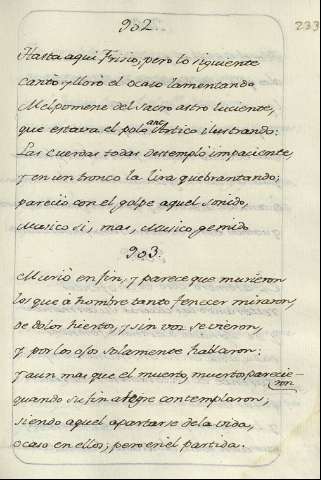 902
233
Hasta aqui Frisio, pero lo siguiente
cantò y llorò el ocaso lamentando
Melpomene del sacro astro luciente,
que estava el polo antartico ilustrando:
Las cuerdas todas destemplò impaciente,
y en un tronco la lira quebrantando;
pareciò con el golpe aquel sonido,
Musico si, mas, Musico gemido
903.
Muriò en fin, y parece que murieron
los que à hombre tanto fenecer miraron,
de dolor yertos, y sin voz se vieron,
y por los ojos solamente hablaron:
y aun mas que el muerto, muertos parecie-
ron
quando su fin alegre contemplaron;
siendo aquel apartarse de la vida,
ocaso en ellos; pero en èl partida.